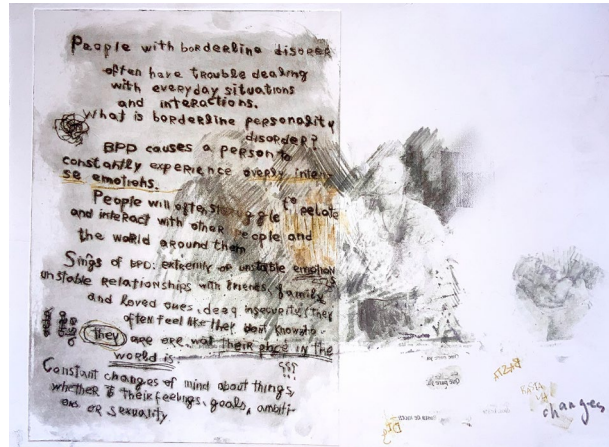 People with borderline disorer
often have trouble dealing
with everyday situations
and interactions.
What is borderline personality
disorder?
BPD causes a person to
constantly experience overly inten-
se emotions.
People will often struggle to relate
and interact with other people and
the world around them
Sings of BPD: extremely or unstable emotion
unstable relationships with friends, family
and loved ones, deaq insecurity (They
often feel like they don't know
they are or wat their place in the
world is
Constant changes of mind about things,
whether is their feelings, goals, ambiti-
ons or sexuality
changes